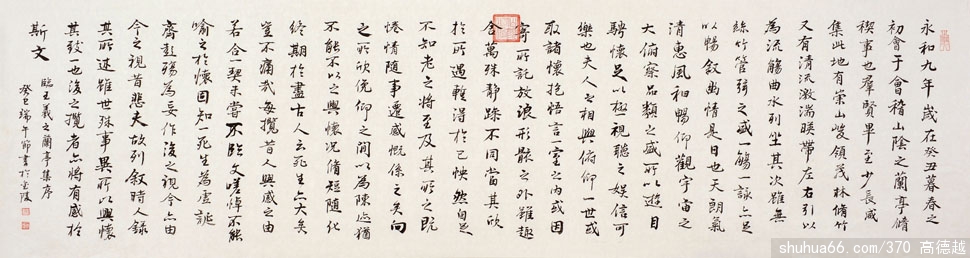 永和九年歲在癸丑暮春之
初會于會稽山陰之蘭亭脩
禊事也群賢畢至少長咸
集此地有崇山峻領茂林脩竹
又有清流激湍暎帶左右引以
為流觴曲水列坐其次雖無
絲竹管弦之盛一觴一詠亦足
以暢敘幽情是日也天朗氣
清惠風和暢仰觀宇宙之
大俯察品類之盛所以遊目
騁懷足以極視聽之娛信可
樂也夫人之相與俯仰一世或
取諸懷抱悟言一室之內或因
寄所託放浪形骸之外雖趣
舍萬殊靜躁不同當其欣
於所遇輒得於己怏然自足
不知老之將至及其所之既
惓情隨事遷感慨係之矣向
之所欣俛仰之間以為陳迹猶
不能不以之興懷況脩短隨化
終期於盡古人云死生亦大矣
豈不痛哉每攬昔人興感之由
若合一契未嘗不臨文嗟悼不能
喻之於懷固知一死生為虛誕
齊彭殤為妄作後之視今亦由
今之視昔悲夫故列敘時人錄
其所述雖世殊事異所以興懷
其致一也後之攬者亦將有感於
斯文
臨王羲之蘭亭集序
癸巳端午節書於金陵
shuhua66.com/370 高德越